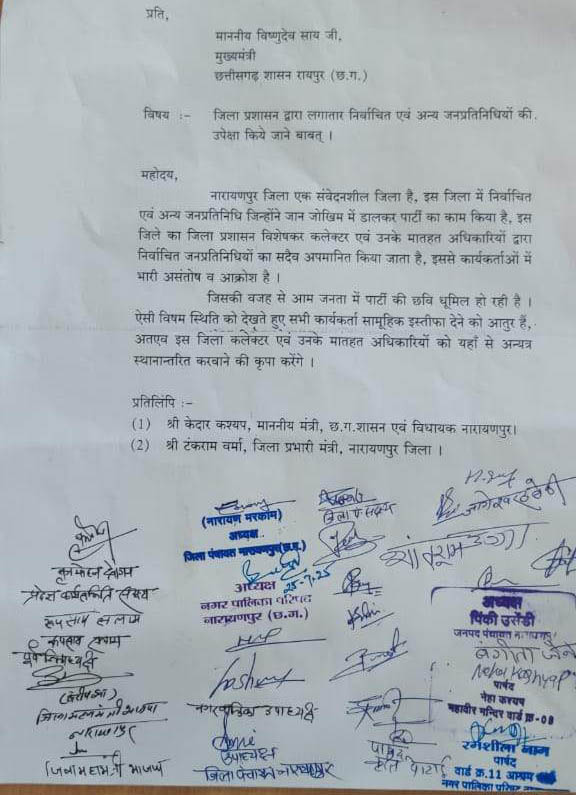 प्रति,
माननीय विष्णुदेव साय जी,
मुख्यमंत्री
छत्तीसगढ़ शासन रायपुर (छ.ग.)
विषय :- जिला प्रशासन द्वारा लगातार निर्वाचित एवं अन्य जनप्रतिनिधियों की
उपेक्षा किये जाने बाबत् ।
महोदय,
नारायणपुर जिला एक संवेदनशील जिला है, इस जिला में निर्वाचित
एवं अन्य जनप्रतिनिधि जिन्होंने जान जोखिम में डालकर पार्टी का काम किया है, इस
जिले का जिला प्रशासन विशेषकर कलेक्टर एवं उनके मातहत अधिकारियों द्वारा
निर्वाचित जनप्रतिनिधियों का सदैव अपमानित किया जाता है, इससे कार्यकर्ताओं में
भारी असंतोष व आक्रोश है ।
जिसकी वजह से आम जनता में पार्टी की छवि धूमिल हो रही है ।
ऐसी विषम स्थिति को देखते हुए सभी कार्यकर्ता सामूहिक इस्तीफा देने को आतुर हैं,
अतएव इस जिला कलेक्टर एवं उनके मातहत अधिकारियों को यहाँ से अन्यत्र
स्थानान्तरित करवाने की कृपा करेंगे ।
प्रतिलिपि :-
(1) श्री केदार कश्यप, माननीय मंत्री, छ.ग.शासन एवं विधायक नारायणपुर।
(2) श्री टंकराम वर्मा, जिला प्रभारी मंत्री, नारायणपुर जिला ।
(नारायण मरकाम)
अध्यक्ष
जिला पंचायत नारायणपुर(छ.ग.)
25-7-25
अध्यक्ष
नगर पालिका परिषद
नारायणपुर (छ.ग.)
अध्यक्ष
पिंकी उसेंडी
जनपद पंचायत नारायणपुर
Neha Kashyap
पार्षद
नेहा कश्यप
महावीर मन्दिर वार्ड क्र.-08
रूपसाय सलाम
नारायणपुर
जिला महामंत्री भाजपा
नगरपालिका उपाध्यक्ष
उपाध्यक्ष
जिला पंचायत नारायणपुर
पार्षद
रमशीला नाग
पार्षद
वार्ड क्र.11
नगर पालिका परिषद